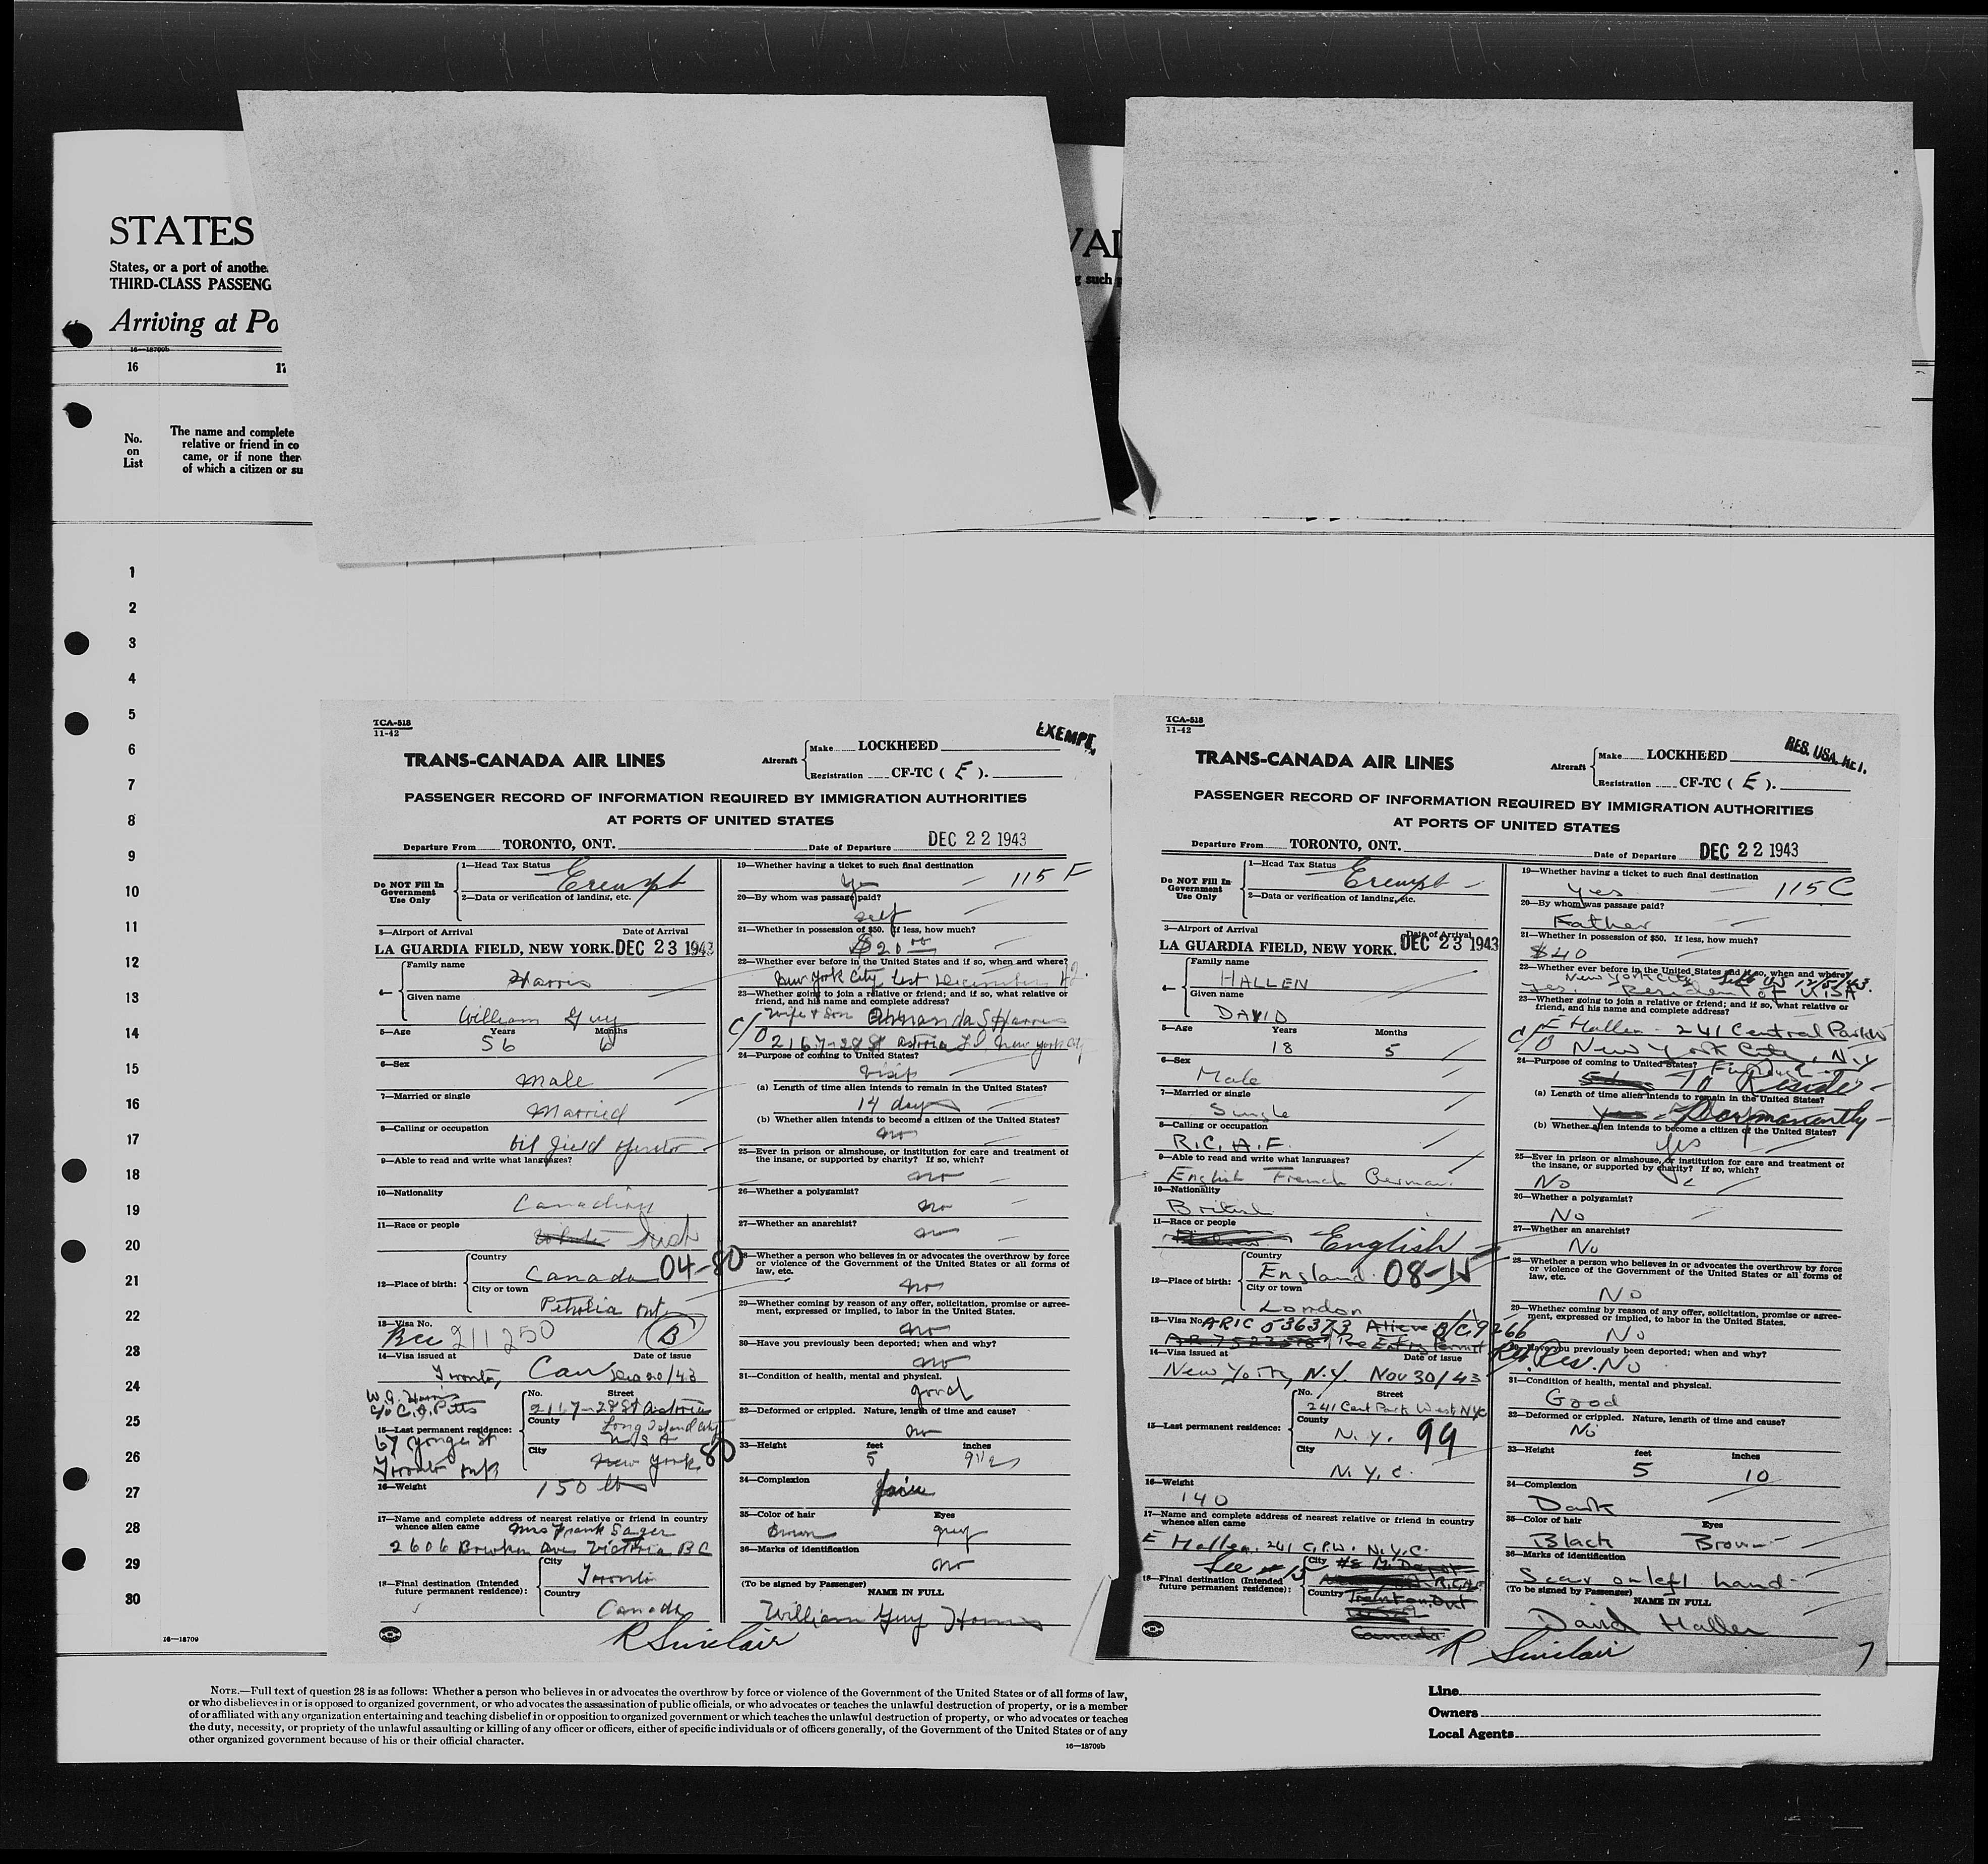 STATES
States, or a port of anothe
THIRD-CLASS PASSENG
Arriving at Po
16—18709b
16 17
No.
on
List
The name and complete
relative or friend in co
came, or if none ther
of which a citizen or su
VAL
g such
1
2
3
4
5
6
7
8
9
10
11
12
13
14
15
16
17
18
19
20
21
22
28
24
25
26
27
28
29
30
16—18709
TCA-518
11-42
EXEMPT.
TRANS-CANADA AIR LINES
Aircraft
Make LOCKHEED
Registration CF-TC ( E ).
PASSENGER RECORD OF INFORMATION REQUIRED BY IMMIGRATION AUTHORITIES
AT PORTS OF UNITED STATES
Departure From TORONTO, ONT. Date of Departure DEC 22 1943
Do NOT Fill In
Government
Use Only
1—Head Tax Status
Exempt
2—Data or verification of landing, etc.
3—Airport of Arrival Date of Arrival
LA GUARDIA FIELD, NEW YORK. DEC 23 1943
4— Family name
Harris
Given name
William Guy
5—Age Years Months
56 6
6—Sex
male
7—Married or single
Married
8—Calling or occupation
oil field operator
9—Able to read and write what languages?
10—Nationality
Canadian
11—Race or people
White Irish
12—Place of birth:
Country
Canada 04-80
City or town
Petrolia Ont
13—Visa No.
Bcc 211250 B
14—Visa issued at Date of issue
Toronto, Can Dec 20/43
W.G. Harris
c/o C.A. Pitts
15—Last permanent residence:
67 Yonge St
Toronto Ont
No. Street
2167-28 St Astoria
County
Long Island City
U S A
City
New York 80
16—Weight
150 lbs
17—Name and complete address of nearest relative or friend in country
whence alien came Mrs Frank Sager
2606 Ave Victoria BC
18—Final destination (Intended
future permanent residence):
City
Toronto
Country
Canada
19—Whether having a ticket to such final destination
Yes 115 F
20—By whom was passage paid?
self
21—Whether in possession of $50. If less, how much?
$20.00
22—Whether ever before in the United States and if so, when and where?
New York City last December 42.
23—Whether going to join a relative or friend; and if so, what relative or
friend, and his name and complete address?
Wife & Son Amanda S Harris
c/o 2167-28 St Astoria L.I. New York City
24—Purpose of coming to United States?
Visit
(a) Length of time alien intends to remain in the United States?
14 days
(b) Whether alien intends to become a citizen of the United States?
no
25—Ever in prison or almshouse, or institution for care and treatment of
the insane, or supported by charity? If so, which?
no
26—Whether a polygamist?
no
27—Whether an anarchist?
no
28—Whether a person who believes in or advocates the overthrow by force
or violence of the Government of the United States or all forms of
law, etc.
no
29—Whether coming by reason of any offer, solicitation, promise or agree-
ment, expressed or implied, to labor in the United States.
no
30—Have you previously been deported; when and why?
no
31—Condition of health, mental and physical.
good
32—Deformed or crippled. Nature, length of time and cause?
no
33—Height feet inches
5 9 1/2
34—Complexion
fair
35—Color of hair Eyes
Brown grey
36—Marks of identification
no
(To be signed by Passenger)
NAME IN FULL
William Guy Harris
R Sinclair
TCA-518
11-42
RES. USA. RET.
TRANS-CANADA AIR LINES
Aircraft
Make LOCKHEED
Registration CF-TC ( E ).
PASSENGER RECORD OF INFORMATION REQUIRED BY IMMIGRATION AUTHORITIES
AT PORTS OF UNITED STATES
Departure From TORONTO, ONT. Date of Departure DEC 22 1943
Do NOT Fill In
Government
Use Only
1—Head Tax Status
Exempt
2—Data or verification of landing, etc.
3—Airport of Arrival Date of Arrival
LA GUARDIA FIELD, NEW YORK. DEC 23 1943
4— Family name
HALLEN
Given name
DAVID
5—Age Years Months
18 5
6—Sex
Male
7—Married or single
Single
8—Calling or occupation
R.C.A.F.
9—Able to read and write what languages?
English French German
10—Nationality
British
11—Race or people
English
12—Place of birth:
Country
England 08-15
City or town
London
13—Visa No. ARIC 536373 B/C. 9266
Re Entry Permit
14—Visa issued at Date of issue
New York, N.Y. Nov 30/43
15—Last permanent residence:
No. Street
241 Cent Park West NYC
County
N.Y. 99
City
N.Y.C.
16—Weight
140
17—Name and complete address of nearest relative or friend in country
whence alien came
E Hallen, 241 C.P.W. N.Y.C.
See #15
18—Final destination (Intended
future permanent residence):
City
Country Trenton, Ont
Canada
19—Whether having a ticket to such final destination
yes 115 C
20—By whom was passage paid?
Father
21—Whether in possession of $50. If less, how much?
$40
22—Whether ever before in the United States and if so, when and where?
New York City
yes. Resident of USA
23—Whether going to join a relative or friend; and if so, what relative or
friend, and his name and complete address?
E Hallen - 241 Central Park W
c/o New York City, N.Y
24—Purpose of coming to United States?
To Reside
(a) Length of time alien intends to remain in the United States?
Permanently
(b) Whether alien intends to become a citizen of the United States?
yes
25—Ever in prison or almshouse, or institution for care and treatment of
the insane, or supported by charity? If so, which?
No
26—Whether a polygamist?
No
27—Whether an anarchist?
No
28—Whether a person who believes in or advocates the overthrow by force
or violence of the Government of the United States or all forms of
law, etc.
No
29—Whether coming by reason of any offer, solicitation, promise or agree-
ment, expressed or implied, to labor in the United States.
No
30—Have you previously been deported; when and why?
Ret. Res. No
31—Condition of health, mental and physical.
Good
32—Deformed or crippled. Nature, length of time and cause?
No
33—Height feet inches
5 10
34—Complexion
Dark
35—Color of hair Eyes
Black Brown
36—Marks of identification
Scar on left hand
(To be signed by Passenger)
NAME IN FULL
David Hallen
R Sinclair
NOTE.—Full text of question 28 is as follows: Whether a person who believes in or advocates the overthrow by force or violence of the Government of the United States or of all forms of law,
or who disbelieves in or is opposed to organized government, or who advocates the assassination of public officials, or who advocates or teaches the unlawful destruction of property, or is a member
of or affiliated with any organization entertaining and teaching disbelief in or opposition to organized government or which teaches the unlawful destruction of property, or who advocates or teaches
the duty, necessity, or propriety of the unlawful assaulting or killing of any officer or officers, either of specific individuals or of officers generally, of the Government of the United States or of any
other organized government because of his or their official character.
16—18709b
Line
Owners
Local Agents